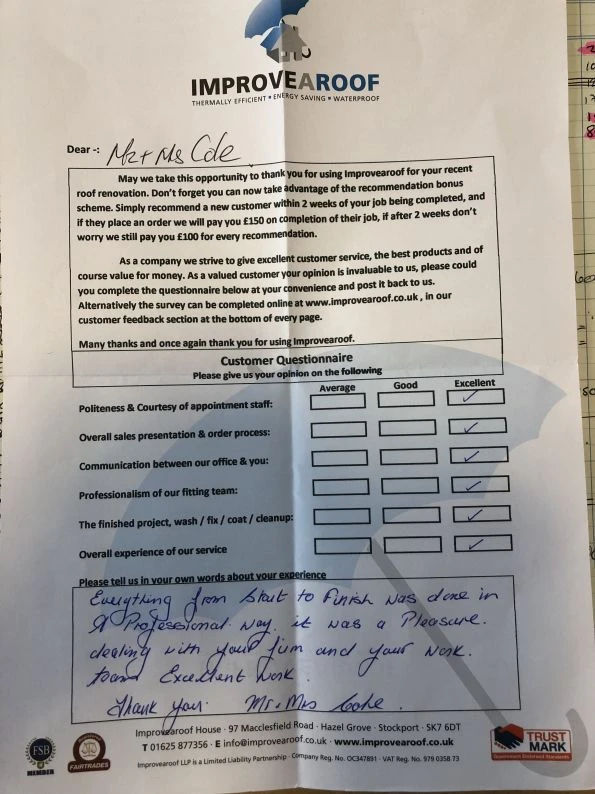 IMPROVEAROOF
THERMALLY EFFICIENT • ENERGY SAVING • WATERPROOF
Dear -: Mr + Ms Cole
May we take this opportunity to thank you for using Improvearoof for your recent
roof renovation. Don't forget you can now take advantage of the recommendation bonus
scheme. Simply recommend a new customer within 2 weeks of your job being completed, and
if they place an order we will pay you £150 on completion of their job, if after 2 weeks don't
worry we still pay you £100 for every recommendation.
As a company we strive to give excellent customer service, the best products and of
course value for money. As a valued customer your opinion is invaluable to us, please could
you complete the questionnaire below at your convenience and post it back to us.
Alternatively the survey can be completed online at www.improvearoof.co.uk , in our
customer feedback section at the bottom of every page.
Many thanks and once again thank you for using Improvearoof.
Customer Questionnaire
Please give us your opinion on the following
Average Good Excellent
Politeness & Courtesy of appointment staff:
Overall sales presentation & order process:
Communication between our office & you:
Professionalism of our fitting team:
The finished project, wash / fix / coat / cleanup:
Overall experience of our service
Please tell us in your own words about your experience
Everything from Start to Finish was done in
A Professional way. it was a Pleasure.
dealing with your firm and your work.
Excellent work.
Thank you. Mr. Mrs Cole.
Improvearoof House · 97 Macclesfield Road · Hazel Grove · Stockport · SK7 6DT
T 01625 877356 · E info@improvearoof.co.uk · www.improvearoof.co.uk
Improvearoof LLP is a Limited Liability Partnership · Company Reg. No. OC347891 · VAT Reg. No. 979 0358 73
FSB
MEMBER
FAIRTRADES
TRUST
MARK
Government Endorsed Standards